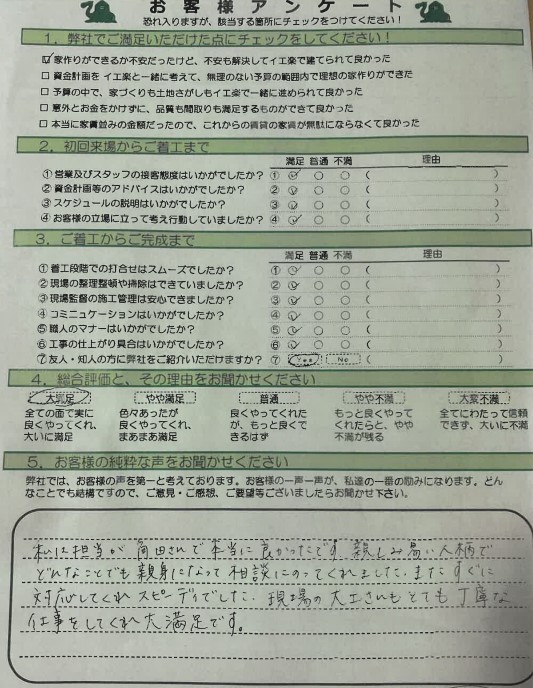 お客様アンケート
恐れ入りますが、該当する箇所にチェックをつけてください！
1．弊社でご満足いただけた点にチェックをしてください！
☑ 家作りができるか不安だったけど、不安も解決してイエ楽で建てられて良かった
□ 資金計画を イエ楽と一緒に考えて、無理のない予算の範囲内で理想の家作りができた
□ 予算の中で、家づくりも土地さがしもイエ楽で一緒に進められて良かった
□ 意外とお金をかけずに、品質も間取りも満足するものができて良かった
□ 本当に家賃並みの金額だったので、これからの賃貸の家賃が無駄にならなくて良かった
2．初回来場からご着工まで
満足 普通 不満 理由
①営業及びスタッフの接客態度はいかがでしたか？ ① ( )
②資金計画等のアドバイスはいかがでしたか？ ② ( )
③スケジュールの説明はいかがでしたか？ ③ ( )
④お客様の立場に立って考え行動していましたか？ ④ ( )
3．ご着工からご完成まで
満足 普通 不満 理由
①着工段階での打合せはスムーズでしたか？ ① ( )
②現場の整理整頓や掃除はできていましたか？ ② ( )
③現場監督の施工管理は安心できましたか？ ③ ( )
④コミニュケーションはいかがでしたか？ ④ ( )
⑤職人のマナーはいかがでしたか？ ⑤ ( )
⑥工事の仕上がり具合はいかがでしたか？ ⑥ ( )
⑦友人・知人の方に弊社をご紹介いただけますか？ ⑦ Yes No ( )
4．総合評価と、その理由をお聞かせください
大満足 やや満足 普通 やや不満 大変不満
全ての面で実に 色々あったが 良くやってくれた もっと良くやって 全てにわたって信頼
良くやってくれ、 良くやってくれ、 が、もっと良くで くれたらと、やや できず、大いに不満
大いに満足 まあまあ満足 きるはず 不満が残る
5．お客様の純粋な声をお聞かせください
弊社では、お客様の声を第一と考えております。お客様の一声一声が、私達の一番の励みになります。どん
なことでも結構ですので、ご意見・ご感想、ご要望等ございましたらお聞かせ下さい。
私は担当が 角田さんで本当に良かったです 親しみ易い人柄で
どんなことでも 親身になって 相談にのってくれました. また すぐに
対応してくれ スピーディでした. 現場の大工さんも とても 丁寧な
仕事をしてくれ大満足です。